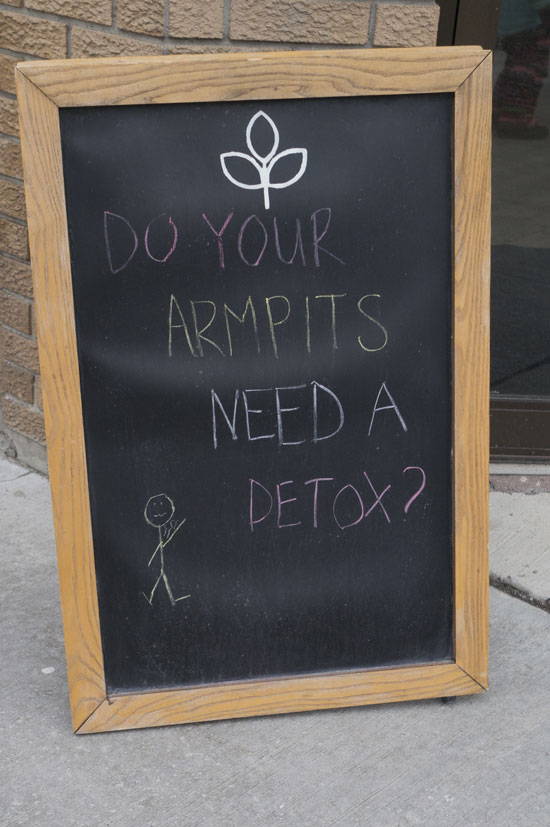 DO YOUR
ARMPITS
NEED A
DETOX?